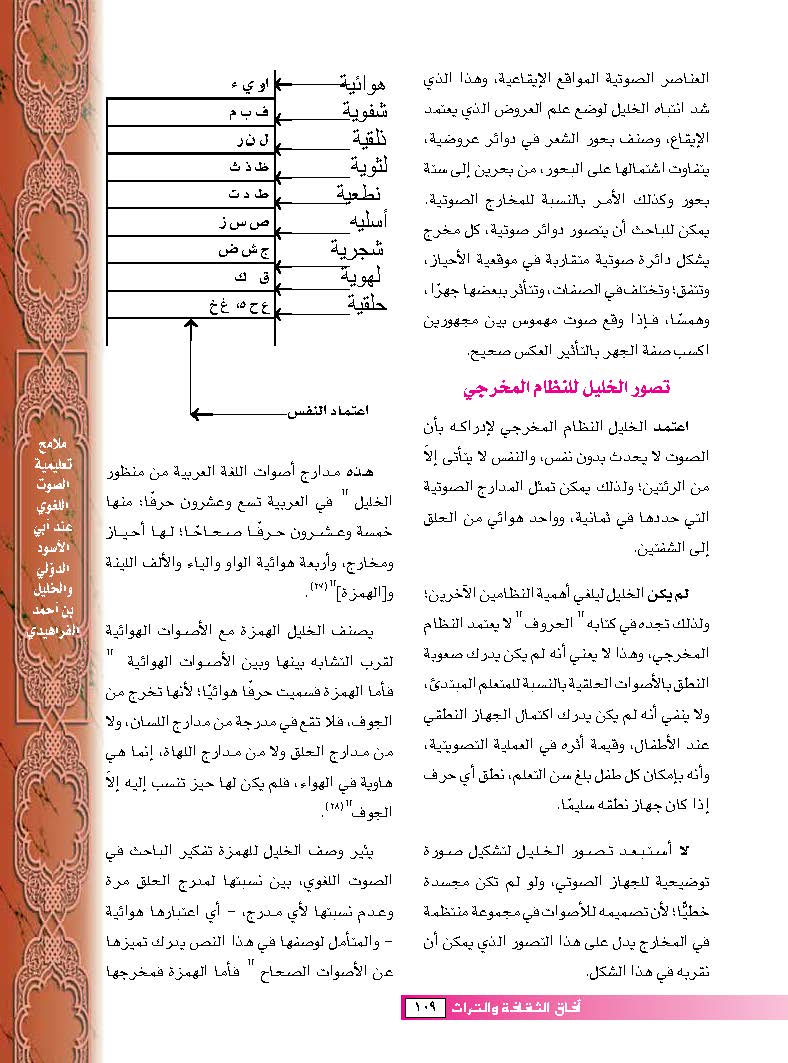 العناصر الصوتية المواقع الإيقاعية، وهذا الذي
شد انتباه الخليل لوضع علم العروض الذي يعتمد
الإيقاع، وصنف بحور الشعر في دوائر عروضية،
يتفاوت اشتمالها على البحور، من بحرين إلى ستة
بحور وكذلك الأمـر بالنسبة للمخارج الصوتية.
يمكن للباحث أن يتصور دوائر صوتية، كل مخرج
يشكل دائرة صوتية متقاربة في موقعية الأحياز،
وتتفق؛ وتختلف في الصفات، وتتأثر ببعضها جهرًا،
وهمسًا، فـإذا وقع صوت مهموس بين مجهورين
اكسب صفة الجهر بالتأثير العكس صحيح.
تصور الخليل للنظام المخرجي
اعتمد الخليل النظام المخرجي لإدراكـه بأن
الصوت لا يحدث بدون نفس، والنفس لا يتأتى إلاَّ
من الرئتين؛ ولذلك يمكن تمثل المدارج الصوتية
التي حددها في ثمانية، وواحد هوائي من الحلق
إلى الشفتين.
لم يكن الخليل ليلغي أهمية النظامين الآخرين؛
ولذلك تجده في كتابه " الحروف " لا يعتمد النظام
المخرجي، وهذا لا يعني أنه لم يكن يدرك صعوبة
النطق بالأصوات الحلقية بالنسبة للمتعلم المبتدئ،
ولا ينفي أنه لم يكن يدرك اكتمال الجهاز النطقي
عند الأطفال، وقيمة أثره في العملية التصويتية،
وأنه بإمكان كل طفل بلغ سن التعلم، نطق أي حرف
إذا كان جهاز نطقه سليمًا.
لا أستبعد تـصـور الـخـلـيـل لتشكيل صـورة
توضيحية للجهاز الصوتي، ولو لم تكن مجسدة
خطيًّا؛ لأن تصميمه للأصوات في مجموعة منتظمة
في المخارج يدل على هذا التصور الذي يمكن أن
نقربه في هذا الشكل.
هوائية ا و ي ء
شفوية ف ب م
ذلقية ل ن ر
لثوية ظ ذ ث
نطعية ط د ت
أسليه ص س ز
شجرية ج ش ض
لهوية ق ك
حلقية ع ح ه، غ خ
اعتماد النفس
هذه مدارج أصوات اللغة العربية من منظور
الخليل " في العربية تسع وعشرون حرفًا؛ منها
خمسة وعـشـرون حـرفًـا صـحـاحًـا؛ لـهـا أحـيـاز
ومخارج، وأربعة هوائية الواو والياء والألف اللينة
و[الهمزة]"(٢٧).
يصنف الخليل الهمزة مع الأصوات الهوائية
لقرب التشابه بينها وبين الأصوات الهوائية "
فأما الهمزة فسميت حرفًا هوائيًا؛ لأنها تخرج من
الجوف، فلا تقع في مدرجة من مدارج اللسان، ولا
من مدارج الحلق ولا من مـدارج اللهاة، إنما هي
هاوية في الهواء، فلم يكن لها حيز تنسب إليه إلاَّ
الجوف"(٢٨).
يثير وصف الخليل للهمزة تفكير الباحث في
الصوت اللغوي، بين نسبتها لمدرج الحلق مرة
وعدم نسبتها لأي مدرج، – أي اعتبارها هوائية
– والمتأمل لوصفها في هذا النص يدرك تميزها
عن الأصوات الصحاح " فأما الهمزة فمخرجها
ملامح
تعليمية
الصوت
اللغوي
عند أبي
الأسود
الدؤلي
والخليل
بن أحمد
الفراهيدي
آفاق الثقافة والتراث ١٠٩